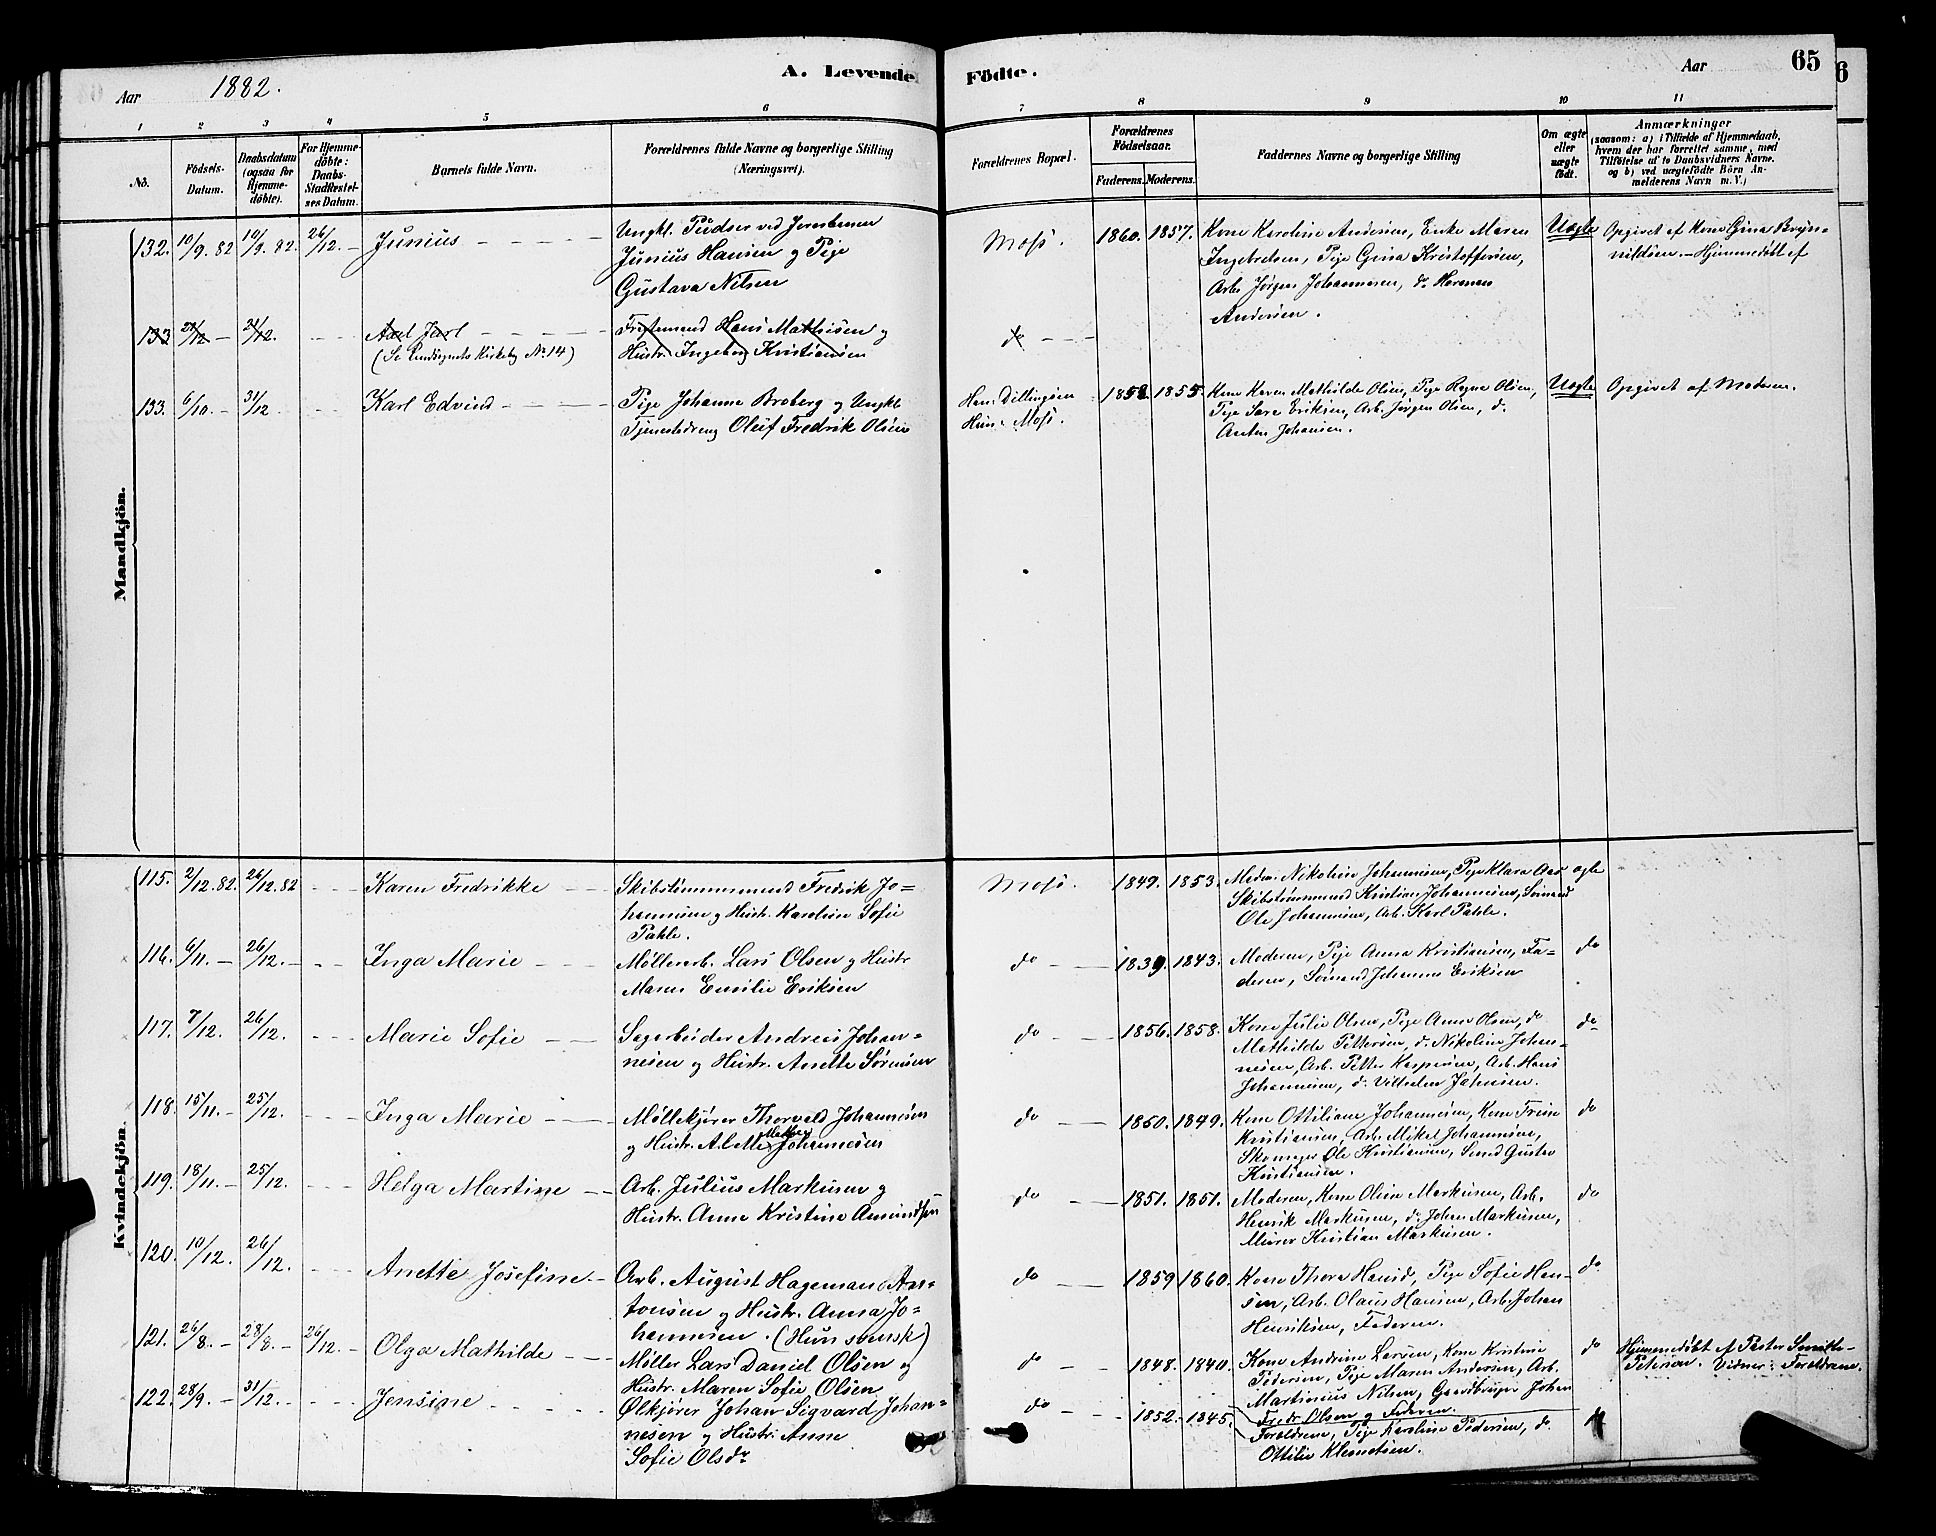 Aar 1882. A. Levende Födte. Aar 65
6
1 2 3 4 5 6 7 8 9 10 11
No.
Födsels-
Datum.
Daabsdatum
(ogsaa for
Hjemme-
döbte).
For Hjemme-
döbte:
Daabs-
Stadfæstel-
ses Datum.
Barnets fulde Navn.
Forældrenes fulde Navne og borgerlige Stilling
(Næringsvei).
Forældrenes Bopæl.
Forældrenes
Födselsaar.
Faderens. Moderens.
Faddernes Navne og borgerlige Stilling
Om ægte
eller
uægte
födt.
Anmærkninger
(saasom: a) i Tilfælde af Hjemmedaab,
hvem der har forrettet samme, med
Tilföielse af to Daabsvidners Navne.
og b) ved uægtefödte Börn An-
melderens Navn m. V.)
Mandkjön.
132. 10/9. 82 19/9. 82. 26/12. – Junius
Ungkl. Pudser ved Jernbanen
Junius Hansen og Pige
Gustava Nilsen
Moss. 1860. 1857.
Kone Karoline Andersen, Enke Maren
Ingebretsen, Pige Gina Kristoffersen,
Arb. Jørgen Johannesen, do Herman
Andersen.
Uægte
Opgivet af Kone Gina Bryn-
nildsen. – Hjemmedøbt af
133 21/12 – 31/12. Axel Jarl
(Se Landsognets Kirkebog No. 14)
Hans Mathisen og
Hustr. Ingeborg Kristiansen
do
133. 6/10. – 31/12 Karl Edvind
Pige Johanne Broberg og Ungkl
Tjenestedreng Oluf Fredrik Olsen
Han: Dillingøen
Hun: Moss.
1852 1855.
Kone Karen Mathilde Olsen, Pige Ragna Olsen,
Pige Sara Eriksen, Arb. Jørgen Olsen, do
Anton Johansen.
Uægte
Opgivet af Moderen.
Kvindekjön.
115. 2/12. 82. 26/12. 82 Karen Fredrikke
Skibstømmermand Fredrik Jo=
hannesen og Hustr. Karoline Sofie
Pahle.
Moss. 1849. 1853.
Medm. Nikoline Johannesen, Pige Klara Aas
Skibstømmermand Kristian Johannesen, Sømand
Ole Johannesen, Arb. Karl Pahle.
ægte
116. 6/11. – 26/12. – Inga Marie
Møllerarb. Lars Olsen og Hustr
Maren Emilie Eriksen
do 1839. 1843.
Moderen, Pige Anna Kristiansen, Fa=
deren, Sømand Johannes Eriksen
do
117. 7/12. 26/12. Marie Sofie
Sagarbeider Andreas Johan=
nesen og Hustr. Anette Sørensen
do 1856. 1858.
Kone Julie Olsen, Pige Anna Olsen, do
Mathilde Pettersen, do Nikoline Johan=
nesen, Arb. Petter Kaspersen, Arb. Hans
Johannesen, do Vilhelm Johnsen.
do
118. 15/11. – 25/12. Inga Marie
Møllekjører Thorvald Johannesen
og Hustr. Mathea Johannesen
do 1850. 1849.
Kone Ottiliane Johannesen, Kone Trine
Kristiansen, Arb. Mikal Johannesen,
Skomager Ole Kristiansen, Smed Gustav
Kristiansen.
do
119. 18/11. – 25/12. Helga Martine
Arb. Julius Markusen og
Hustr. Anne Kristine Amundsen
do 1851. 1851.
Moderen, Kone Oline Markusen, Arb.
Henrik Markusen, do Johan Markusen,
Murer Kristian Markusen.
do
120. 10/12. 26/12. Anette Josefine
Arb. August Hageman An=
tonsen og Hustr. Anna Jo=
hannesen. (Hun svensk)
do 1859 1860.
Kone Thora Hansd., Pige Sofie Han=
sen, Arb. Olaus Hansen, Arb. Johan
Henriksen, Faderen.
do
121. 26/8. – 28/8. – 26/12. – Olga Mathilde
Møller Lars Daniel Olsen og
Hustr. Maren Sofie Olsen
do 1848. 1840.
Kone Andrine Larsen, Kone Kristine
Pedersen, Pige Maren Andersen, Arb.
Martinius Nilsen, Gaardbruger Johan
Fredr. Olsen og Faderen.
do
Hjemmedøbt af Pastor Smitt-
Petersen. Vidner: Forældrene
122. 28/9. – 31/12. Jensine
Ølkjører Johan Sigvard Johan=
nesen og Hustr. Anne
Sofie Olsdr
do 1852. 1845.
Forældrene, Pige Karoline Pedersen, do
Ottilie Klemetsen.